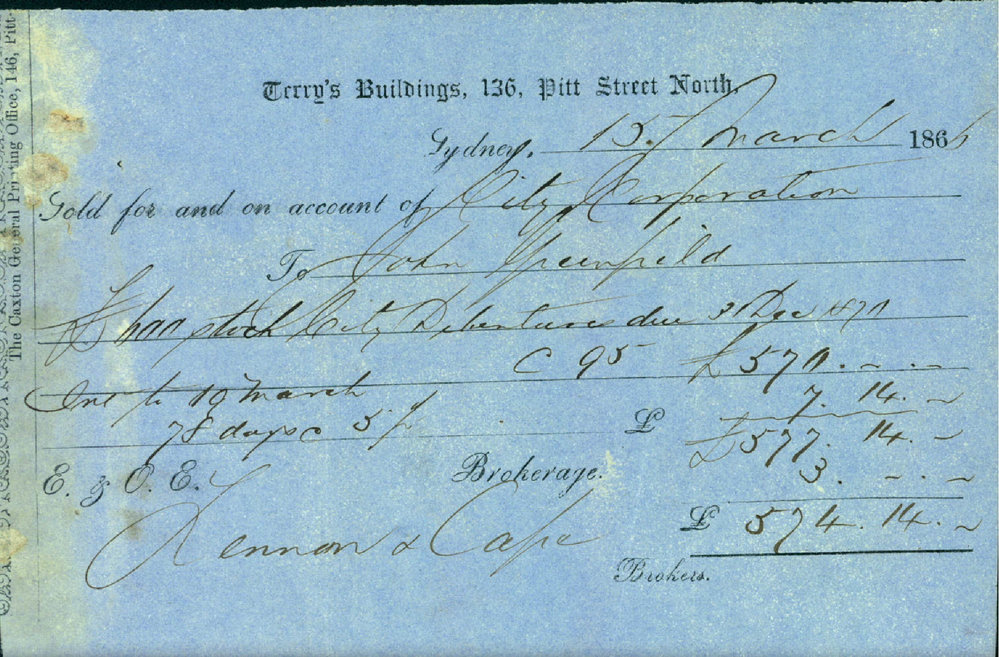 Terry's Buildings, 136, Pitt Street North.
Sydney, 15 March 1866
Sold for and on account of City Corporation
To John Greenfield
£600 stock City Debentures due 31 Dec 1870
@ 95 £570. - . -
Int to 19 March 7. 14. -
78 days @ 5 p £ £577. 14. -
E. & O. E. Brokerage. 3. - . -
£ 574. 14. -
Lennon & Cape
Brokers.
The Caxton General Printing Office, 146, Pitt-